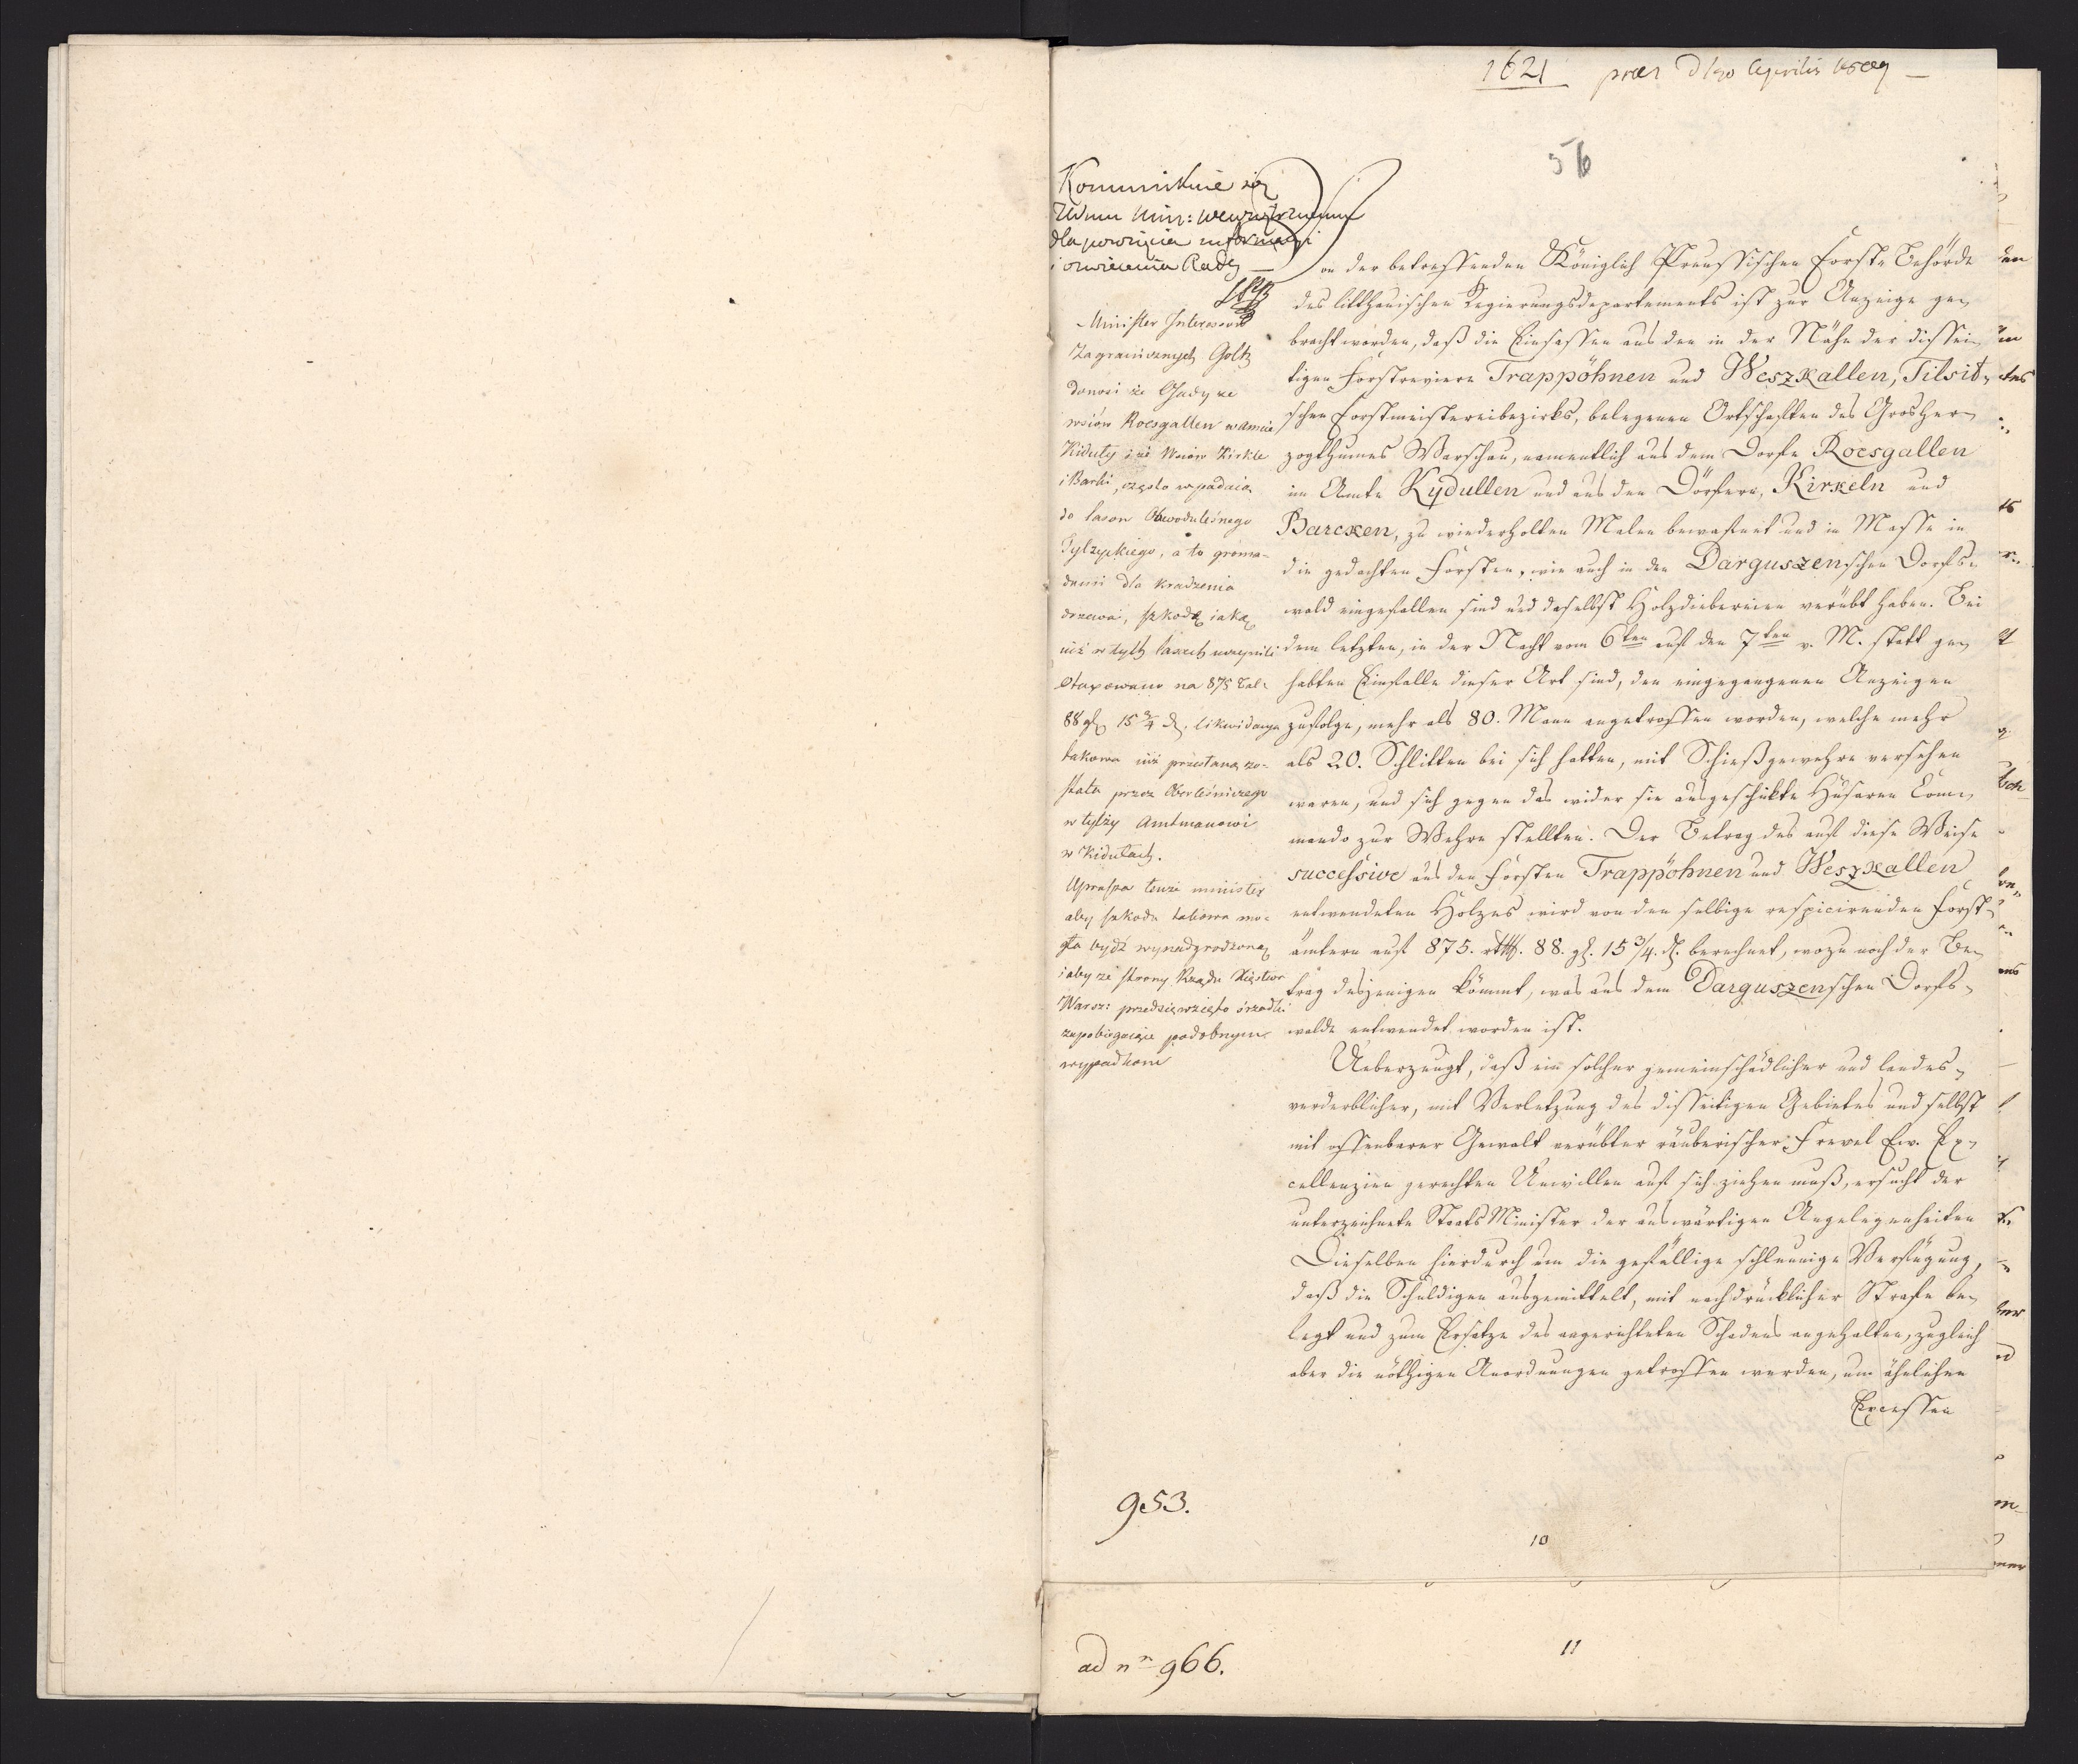 1621 præs d 1go Aprilis
56
Kommunikuie się
JWmu Min: Wewnętrznemu
dla powzięcia informacyi
i oswiecenia Rady —
Minister Interessow
Zagranicznych Goltz
donosi że Gady ze
wsiów Roesgallen w amcie
Kiduły i ze wsiów Kirkle
i Barki, często wpadaią
do lasow Obwodu leśnego
Tylzyckiego, a to groma-
dami dla kradzenia
drzewa, szkodę iaką
iuż w tych lasach uczynili
otaxowano na 875 tal:
88 gl 15 3/4 d. likwidacya
takowa iuż przesłaną zo-
stała przez Oberleśniczego
w tylży Amtmanowi
w Kidułach.
Uprasza tenże minister
aby szkoda takowa mo-
gła bydź wynadgrodzoną
i aby ze strony Rządu Xięstwa
Warsz: przedsięwzięto srzodki
zapobiegaiące podobnym
wypadkom
Von der betreffenden Königlich Preussischen Forst-Behörde
des litthauischen Regierungsdepartements ist zur Anzeige ge-
bracht worden, daß die Einsassen aus den in der Nähe der dissei-
tigen Forstreviere Trappöhnen und Weszkallen, Tilsit-
schen Forstmeistereibezirks, belegenen Ortschaften des Grosher-
zogthumes Warschau, namentlich aus dem Dorfe Roesgallen
im Amte Kydullen und aus den Dörfern, Kirkeln und
Barcken, zu wiederholten Malen bewafnet und in Masse in
die gedachten Forsten, wie auch in den Darguszenschen Dorfs-
wald eingefallen sind und daselbst Holzdiebereien verübt haben. Bei
dem letzten, in der Nacht vom 6ten auf den 7ten v. M. statt ge-
habten Einfalle dieser Art sind, den eingegangenen Anzeigen
zufolge, mehr als 80. Mann angetroffen worden, welche mehr
als 20. Schlitten bei sich hatten, mit Schießgewehre versehen
waren, und sich gegen das wider sie ausgeschikte Husaren Com-
mando zur Wehre stellten. Der Betrag des auf diese Weise
successive aus den Forsten Trappöhnen und Weszkallen
entwendeten Holzes wird von den selbige respicirenden Forst-
ämtern auf 875. rthl. 88. gl. 15 3/4. d. berechnet, wozu noch der Be-
trag desjenigen kömmt, was aus dem Darguszenschen Dorfs-
walde entwendet worden ist.
Ueberzeugt, daß ein solcher gemeinschädlicher und landes-
verderblicher, mit Verletzung des disseitigen Gebietes und selbst
mit offenbarer Gewalt verübter räuberischer Frevel Ew. Ex-
cellenzien gerechten Unwillen auf sich ziehen muß, ersucht der
unterzeichnete StaatsMinister der auswärtigen Angelegenheiten
Dieselben hierdurch um die gefällige schleunige Verfügung,
daß die Schuldigen ausgemittelt, mit nachdrücklicher Strafe be-
legt und zum Ersatze des angerichteten Schadens angehalten, zugleich
aber die nöthigen Anordnungen getroffen werden, um ähnlichen
Excessen
953.
10
ad nro 966.
11